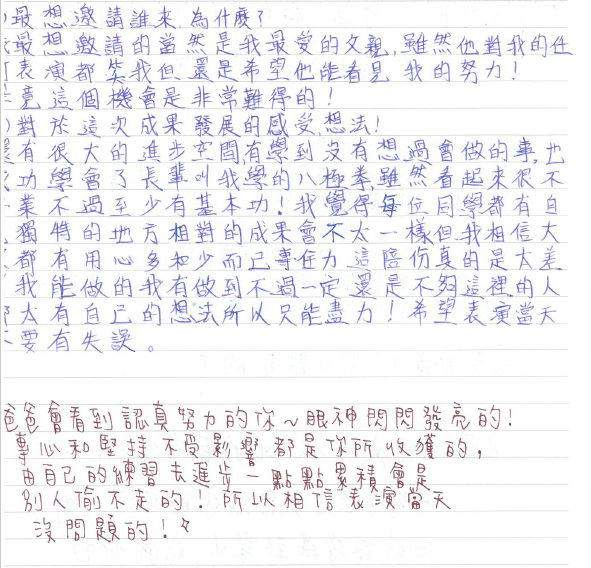 )最想邀請誰來,為什麼?
最想邀請的當然是我最愛的父親,雖然他對我的任
表演都笑我但還是希望他能看見我的努力!
竟這個機會是非常難得的!
)對於這次成果發展的感受,想法!
有很大的進步空間,有學到沒有想過會做的事,也
功學會了長輩叫我學的八極拳,雖然看起來很不
業不過至少有基本功!我覺得每位同學都有自
獨特的地方相對的成果會不太一樣但我相信大
都有用心多和少而已專注力這陪份真的是太差
我能做的我有做到不過一定還是不夠這裡的人
太有自己的想法所以只能盡力!希望表演當天
要有失誤。
爸爸會看到認真努力的你~眼神閃閃發亮的!
專心和堅持不受影響都是你所收獲的,
由自己的練習去進步一點點累積會是
別人偷不走的!所以相信表演當天
沒問題的!